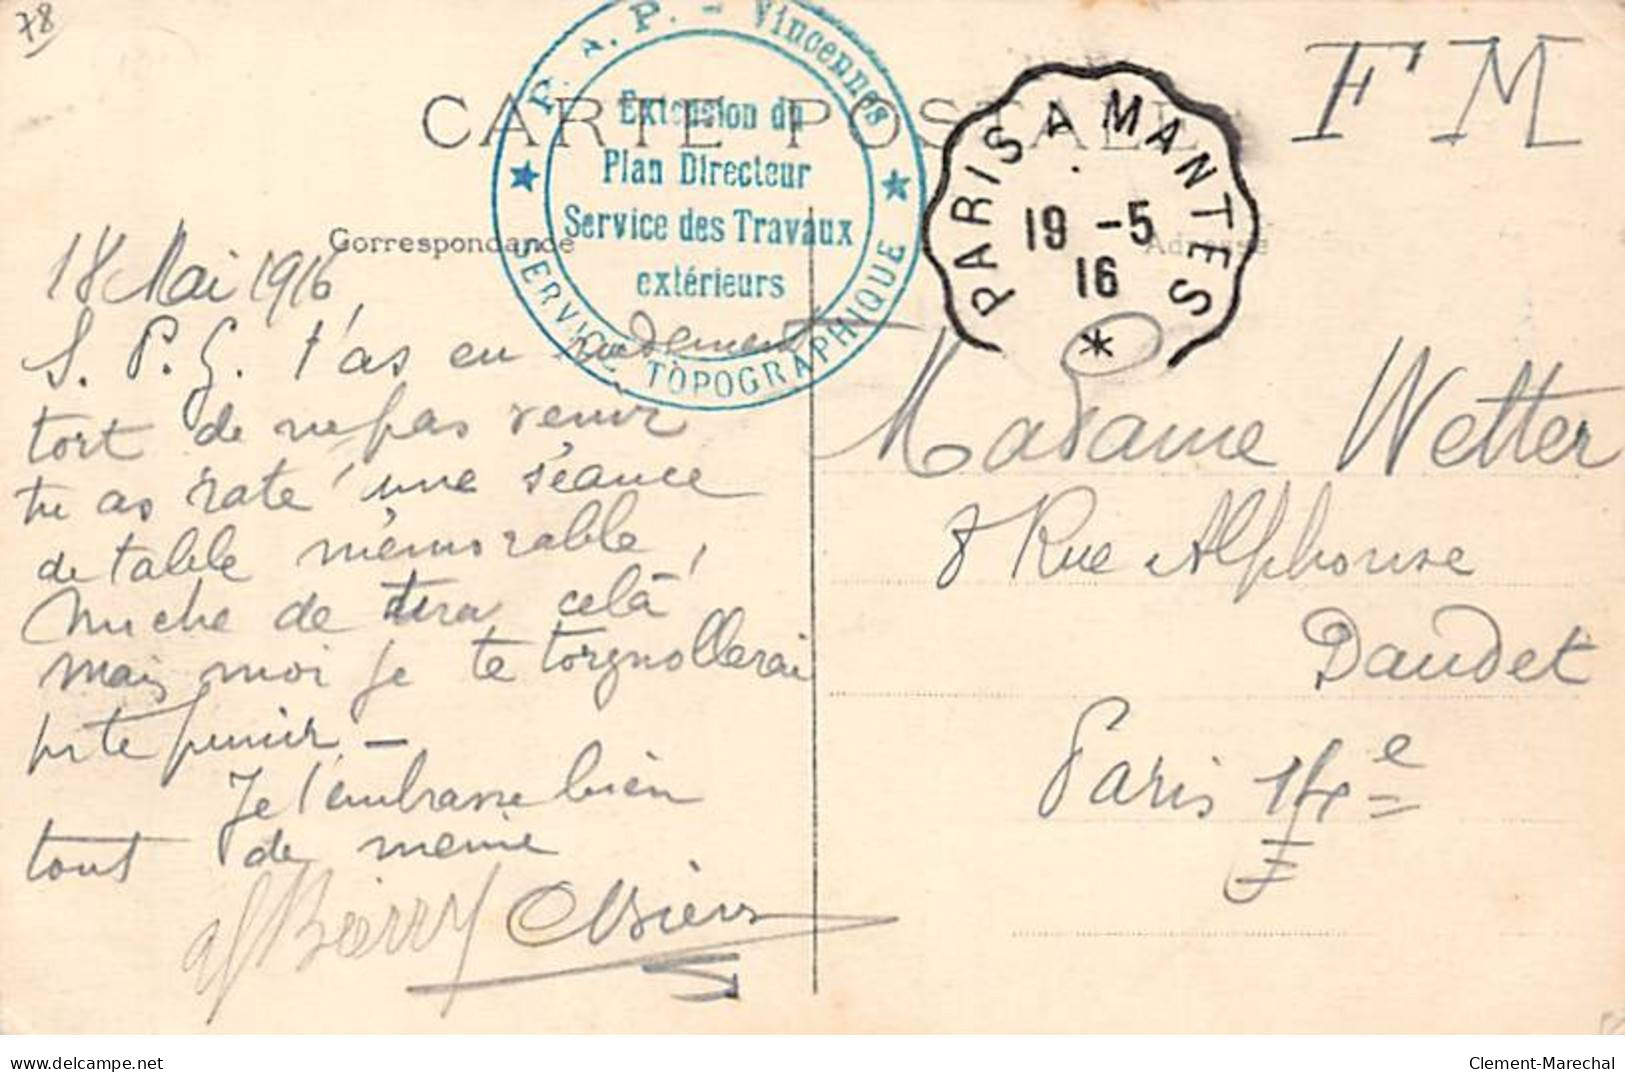 78
CARTE POSTALE
F M
P. A. P. - Vincennes
Extension du
Plan Directeur
Service des Travaux
extérieurs
SERVICE TOPOGRAPHIQUE
PARIS A MANTES
19 -5
16
*
Correspondance
Adresse
18 Mai 1916
S. P. G. t'as eu rudement
tort de ne pas venir
tu as raté une séance
de table mémorable,
Miche de tira celà
mais moi je te torgnollerai
pr te punir -
Je t'embrasse bien
tout de même
Madame Wetter
8 Rue Alphonse
Daudet
Paris 14e
delcampe.net
Clement-Marechal